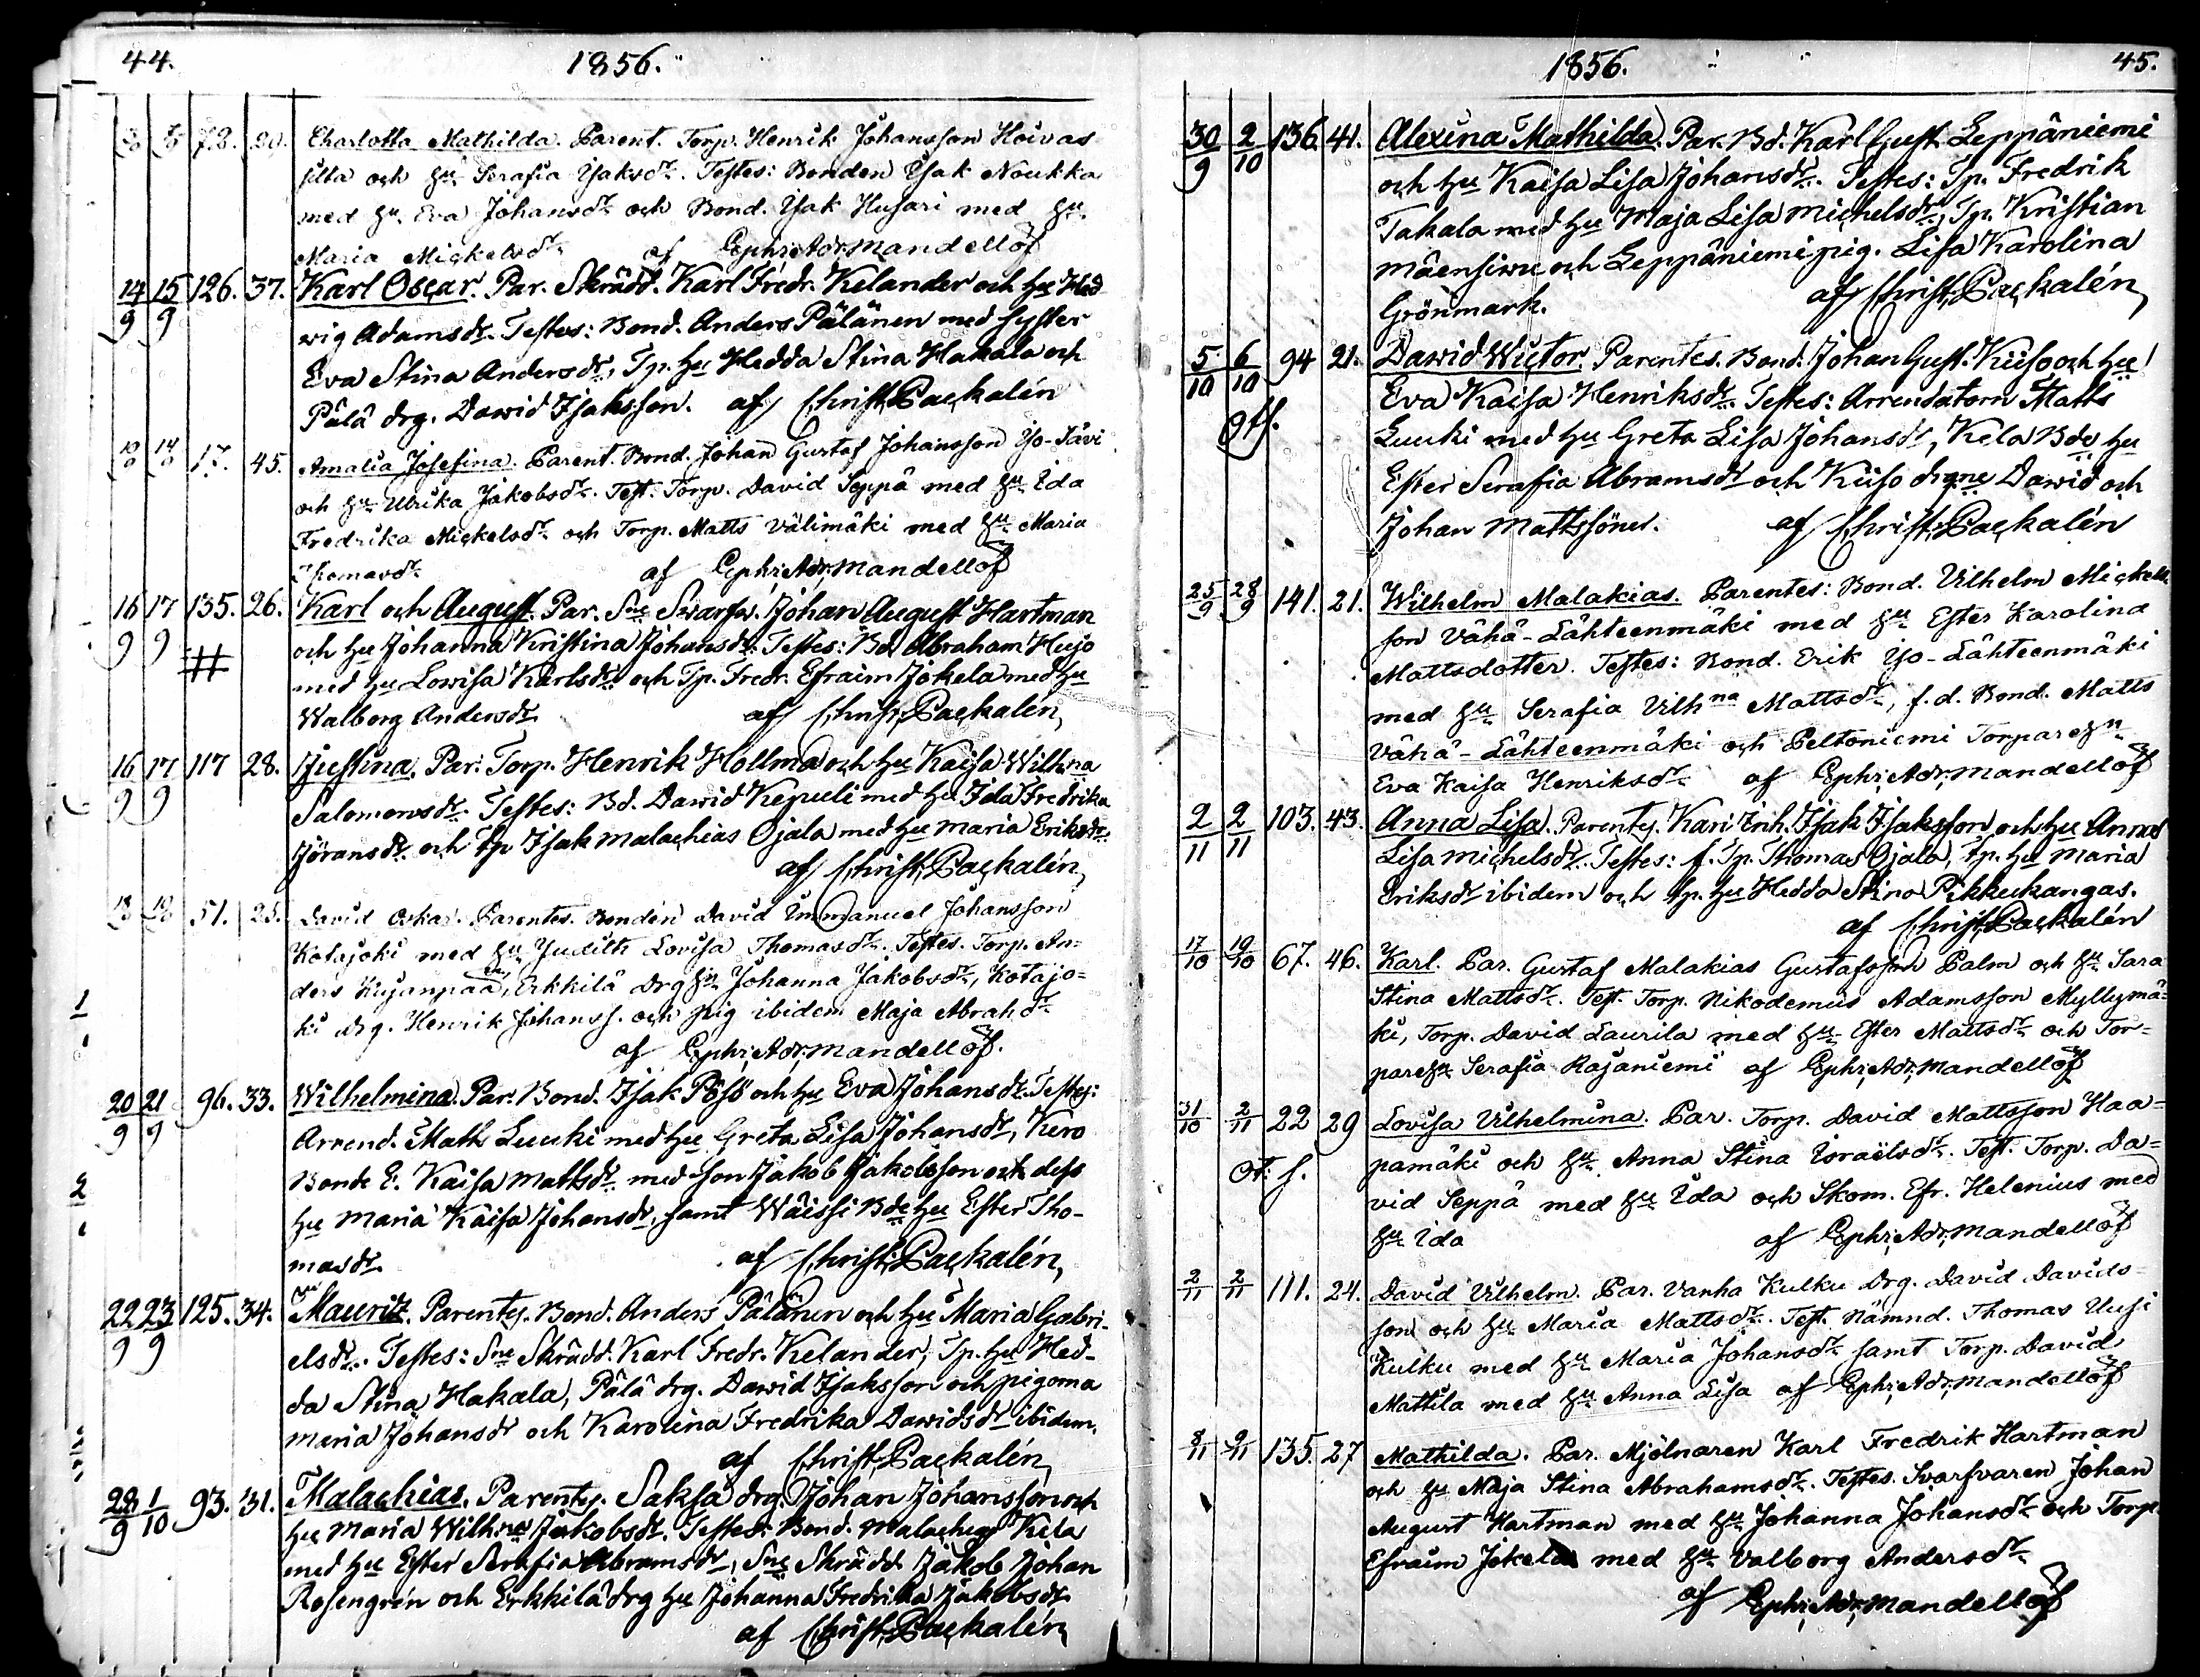 44. 1856.
72. 20. Charlotta Mathilda. Parent. Torp. Henrik Johansson Hoivas
silta och hu Serafia Isaksdr. Testes: Bonden Isak Noukka
med hu Eva Johansdr och Bond. Isak Husari med hu
Maria Mickelsdr af Ephr. Adr. Mandellöf
14/9 15/9 126. 37. Karl Oscar. Par. Skrädd. Karl Fredr. Kelander och hu Hed
wig Adamsdr. Testes: Bond. Anders Pälänen med syster
Eva Stina Andersdr, Tp. hu Hedda Stina Hakala och
Pälä drg. Dawid Isaksson. af Christ. Packalén
17. 45. Amalia Josefina. Parent. Bond. Johan Gustaf Johansson Yo-Tävi
och hu Ulrika Jakobsdr. Test. Torp. David Seppä med hu Ida
Fredrika Mickelsdr och Torp. Matts Välimäki med hu Maria
Thomasdr af Ephr. Adr. Mandellöf
16/9 17/9 135. 26. Karl och August. Par. Sne Swarfw. Johan August Hartman
och hu Johanna Kristina Johansdr. Testes: Bd. Abraham Hujo
med hu Lowisa Karlsdr och Tp. Fredr. Efraim Jokela med hu
Walborg Andersdr af Christ. Packalén
16/9 17/9 117 28. Justina. Par. Torp. Henrik Hollma och hu Kaisa Wilhna
Salomonsdr. Testes: Bd. Dawid Kepuli med hu Ida Fredrika
Jöransdr och Tp Isak Malachias Ojala med hu Maria Eriksdr.
af Christ. Packalén
51. 25. David Oskar. Parentes. Bonden David Immanuel Johansson
Kotajoki med hu Judith Lovisa Thomasdr. Testes. Torp. An=
ders Kujanpää, Erkkilä Drg hu Johanna Jakobsdr, Kotajo=
ki drg. Henrik Johanss. och pig ibidem Maja Abrahdr
af Ephr. Adr. Mandellöf.
20/9 21/9 96. 33. Wilhelmina. Par. Bond. Isak Pösö och hu Eva Johansdr. Testes:
Arrend. Matts Luuki med hu Greta Lisa Johansdr, Kero
Bonde E. Kaisa Mattsdr med son Jakob Jakobsson och dess
hu Maria Kaisa Johansdr, samt Wäissi Bde hu Ester Tho-
masdr. af Christ. Packalén
22/9 23/9 125. 34. Mauritz. Parentes. Bond. Anders Pälänen och hu Maria Gabri-
elsdr. Testes: Sne Skrädd. Karl Fredr. Kelander, Tp. hu Hed-
da Stina Hakala, Pälä drg. Dawid Isaksson och pigorna
Maria Johansdr och Karolina Fredrika Dawidsdr ibidem.
af Christ. Packalén
28/9 1/10 93. 31. Malachias. Parentes. Saksa drg. Johan Johansson och
hu Maria Wilhna Jakobsdr. Testes: Bond. Malachias Kela
med hu Ester Serafia Abramsdr, Sne Skrädd. Jakob Johan
Rosengrén och Erkkilä drg hu Johanna Fredrika Jakobsdr
af Christ. Packalén
1856. 45.
30/9 2/10 136. 41. Alexina Mathilda. Par. Bd. Karl Gust. Leppäniemi
och hu Kaisa Lisa Johansdr. Testes: Tp. Fredrik
Takala med hu Maja Lisa Michelsdr, Tp. Kristian
Mäensivu och Leppäniemi pig. Lisa Karolina
Grönmark. af Christ. Packalén
5/10 6/10 94 21. Dawid Wictor. Parentes. Bond. Johan Gust. Kiiso och hu
Eva Kaisa Henriksdr. Testes: Arrendatorn Matts
Luuki med hu Greta Lisa Johansdr, Kela Bde hu
Ester Serafia Abramsdr och Kiiso drgne Dawid och
Johan Mattssöner. af Christ. Packalén
25/9 28/9 141. 21. Wilhelm Malakias. Parentes: Bond. Vilhelm Mickels
son Vähä-Lähteenmäki med hu Ester Karolina
Mattsdotter. Testes: Bond. Erik Yo-Lähteenmäki
med hu Serafia Vilhna Mattsdr, f.d. Bond. Matts
Vähä-Lähteenmäki och Peltoniemi Torparehu
Eva Kaisa Henriksdr af Ephr. Adr. Mandellöf
2/11 2/11 103. 43. Anna Lisa. Parentes. Kari Inh. Isak Isaksson och hu Anna
Lisa Michelsdr. Testes: f. Tp. Thomas Ojala, Tp. hu Maria
Eriksdr ibidem och tp. hu Hedda Stina Pikkukangas.
af Christ. Packalén
17/10 19/10 67. 46. Karl. Par. Gustaf Malakias Gustafsson Palm och hu Sara
Stina Mattsdr. Test. Torp. Nikodemus Adamsson Myllymä=
ki, Torp. David Laurila med hu Ester Mattsdr och Tor=
parehu Serafia Rajaniemi af Ephr. Adr. Mandellöf
31/10 2/11 22 29 Lovisa Vilhelmina. Par. Torp. David Mattsson Haa=
pamäki och hu Anna Stina Israëlsdr. Test. Torp. Da=
vid Seppä med hu Ida och Skom. Efr. Helenius med
hu Ida af Ephr. Adr. Mandellöf
2/11 2/11 111. 24. David Vilhelm. Par. Vanha Kulku Drg. David Davids=
son och hu Maria Mattsdr. Test. Nämnd. Thomas Uusi
Kulku med hu Maria Johansdr samt Torp. David
Mattila med hu Anna Lisa af Ephr. Adr. Mandellöf
8/11 9/11 135. 27 Mathilda. Par. Mjölnaren Karl Fredrik Hartman
och hu Maja Stina Abrahamsdr. Testes. Svarfvaren Johan
August Hartman med hu Johanna Johansdr och Torp.
Efraim Jokela med hu Valborg Andersdr
af Ephr. Adr. Mandellöf